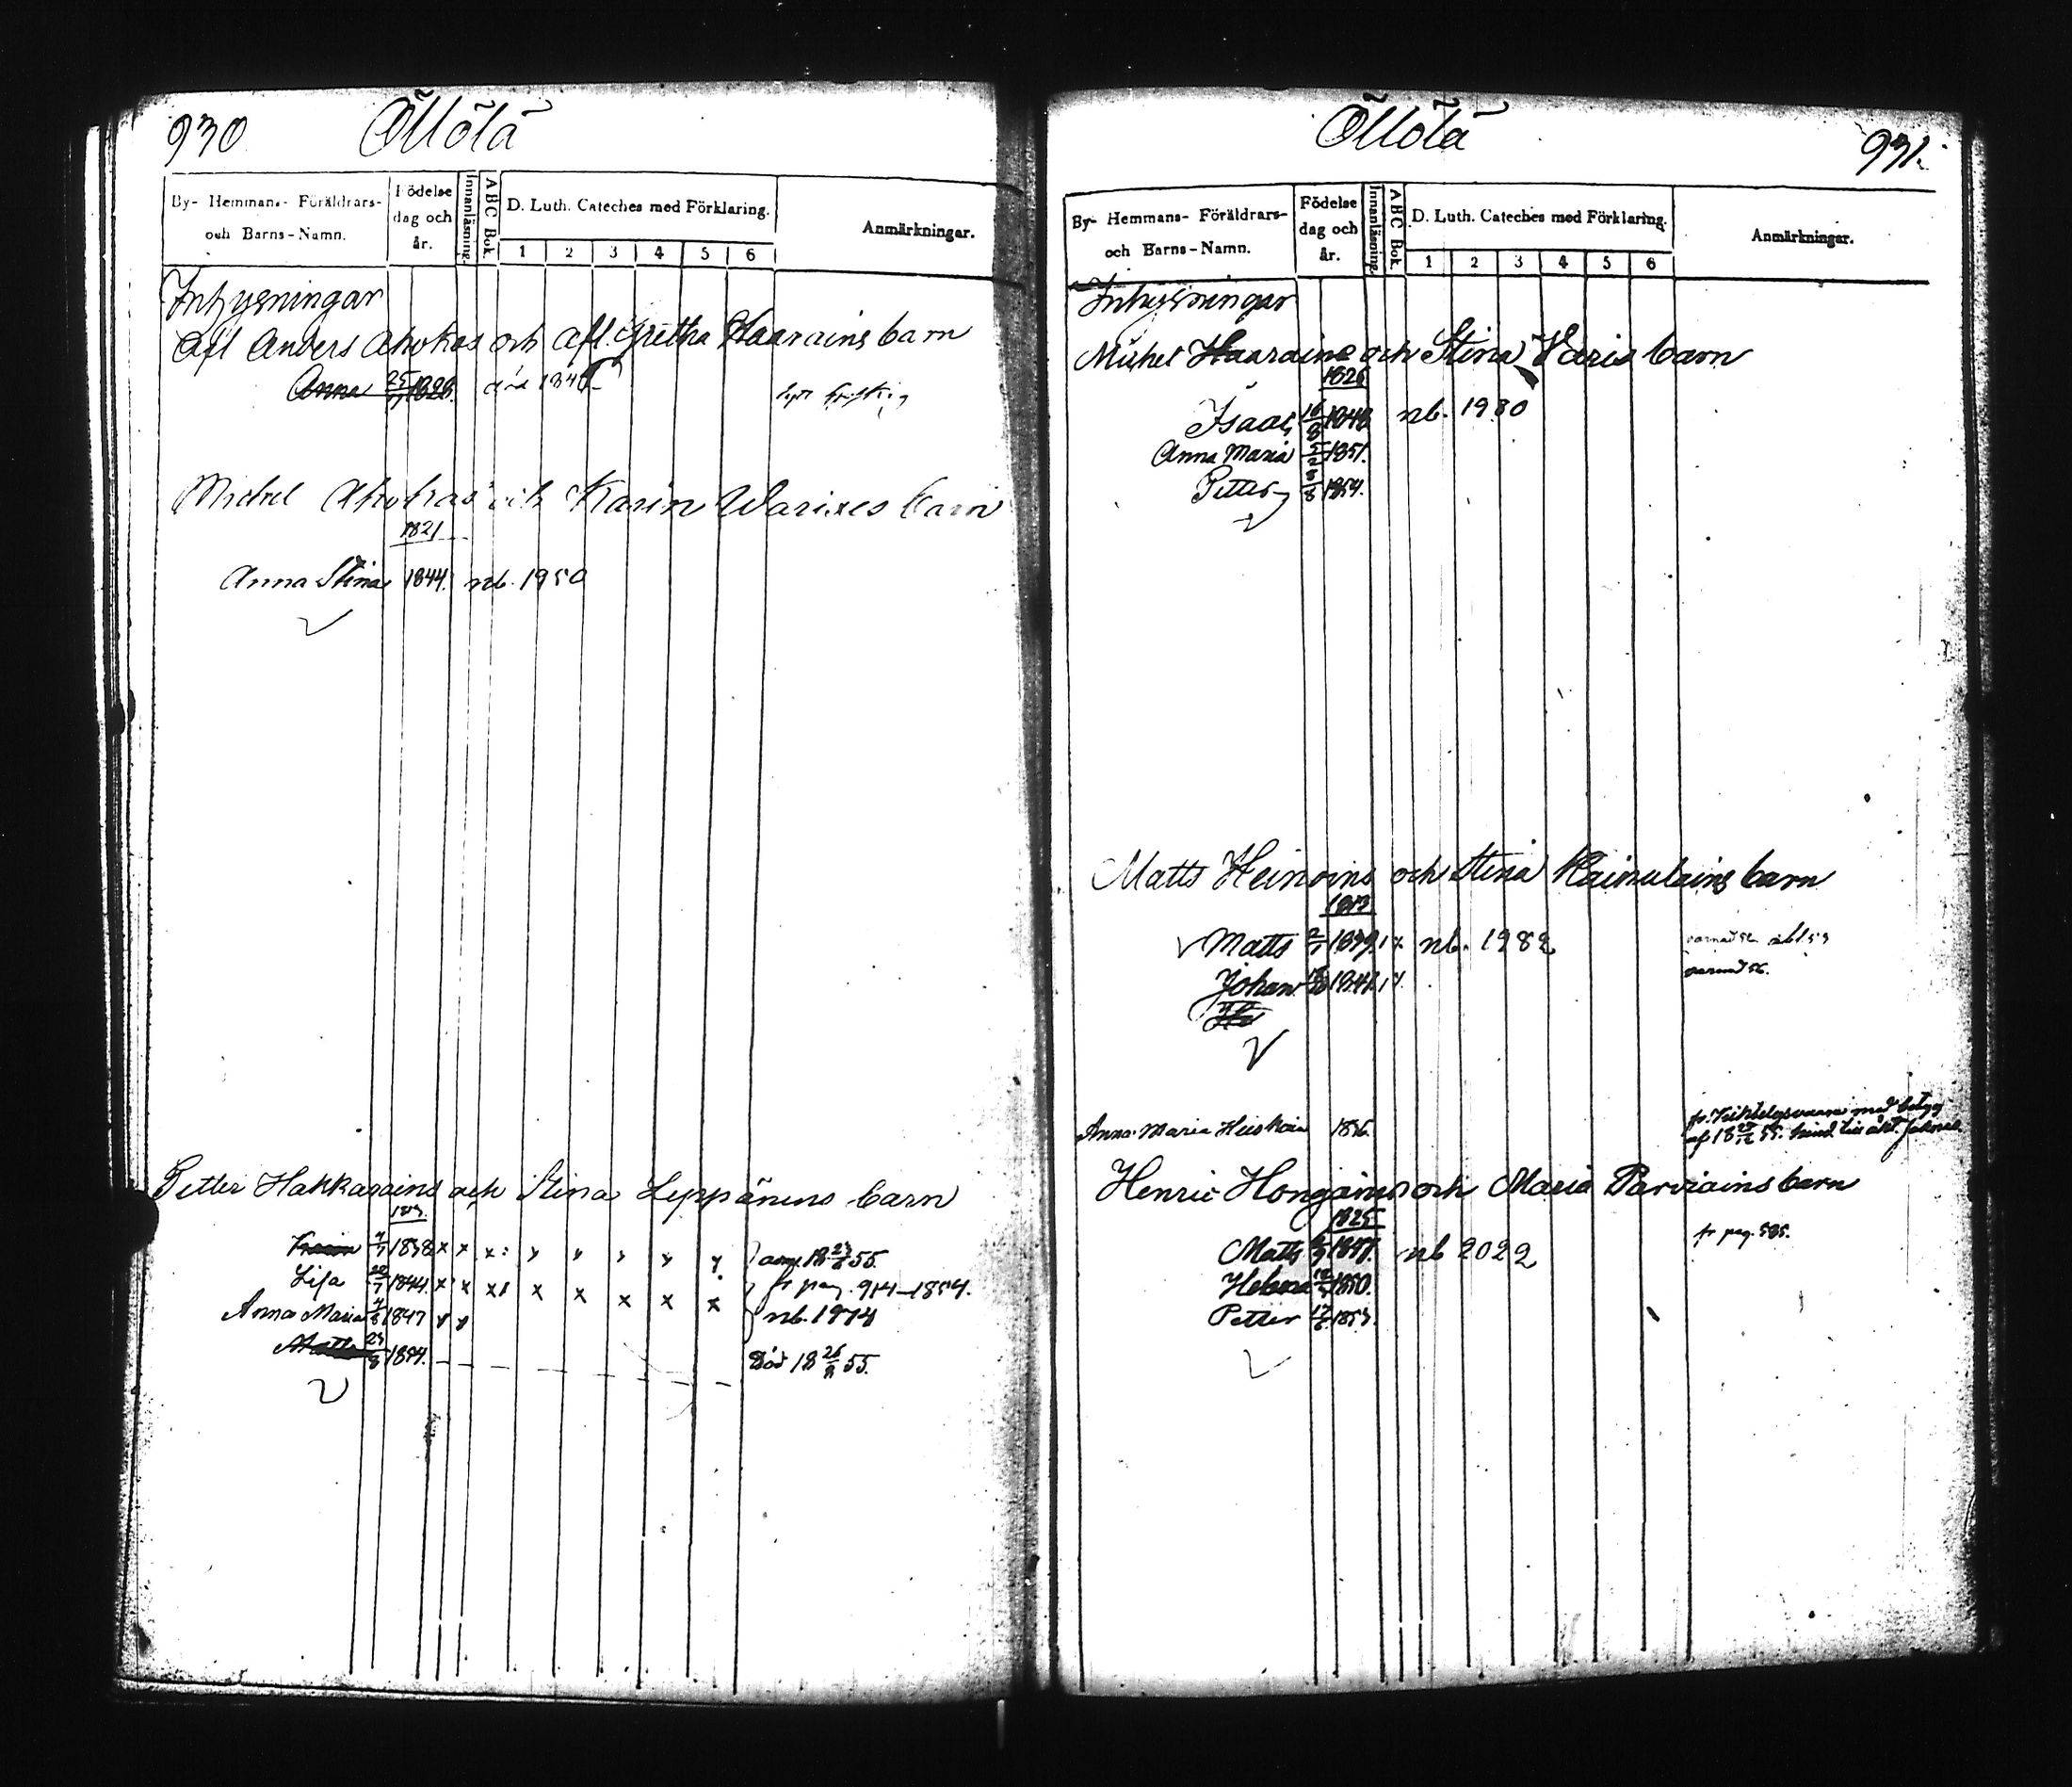 930 Öllölä
By- Hemmans- Föräldrars-
och Barns-Namn.
Födelse
dag och
år.
Innanläsning.
ABC Bok.
D. Luth. Cateches med Förklaring.
1 2 3 4 5 6
Anmärkningar.
Inhysningar
Afl Anders Ahokas och afl. Gretha Haarains barn
Anna 25 1828.
Michel Ahokas och Karin Warises barn
1821
Anna Stina 1844. nb. 1950
Petter Hakkarains och Stina Leppänens barn
1838 x x x
18 55.
Lisa 1844. x x x x x x x x fr pag. 914-1854.
Anna Maria 1847 nb. 1974
Matts 23/8 1854. Död 18 55.
Öllölä 931.
By- Hemmans- Föräldrars-
och Barns-Namn.
Födelse
dag och
år.
Innanläsning.
ABC Bok.
D. Luth. Cateches med Förklaring.
1 2 3 4 5 6
Anmärkningar.
Inhysningar
Michel Haarains och Stina Waris barn
1826
Isaac 16/8 1848 nb. 1980
Anna Maria 1851.
Petter 1854.
Matts Heinoins och Stina Kainulains barn
1813
Matts nb. 1982
Johan
Anna Maria 1836.
Henric Hongains och Maria Parviains barn
1825
fr pag. 585.
Matts 1847. nb 2022
Helena 1850.
Petter 1853.